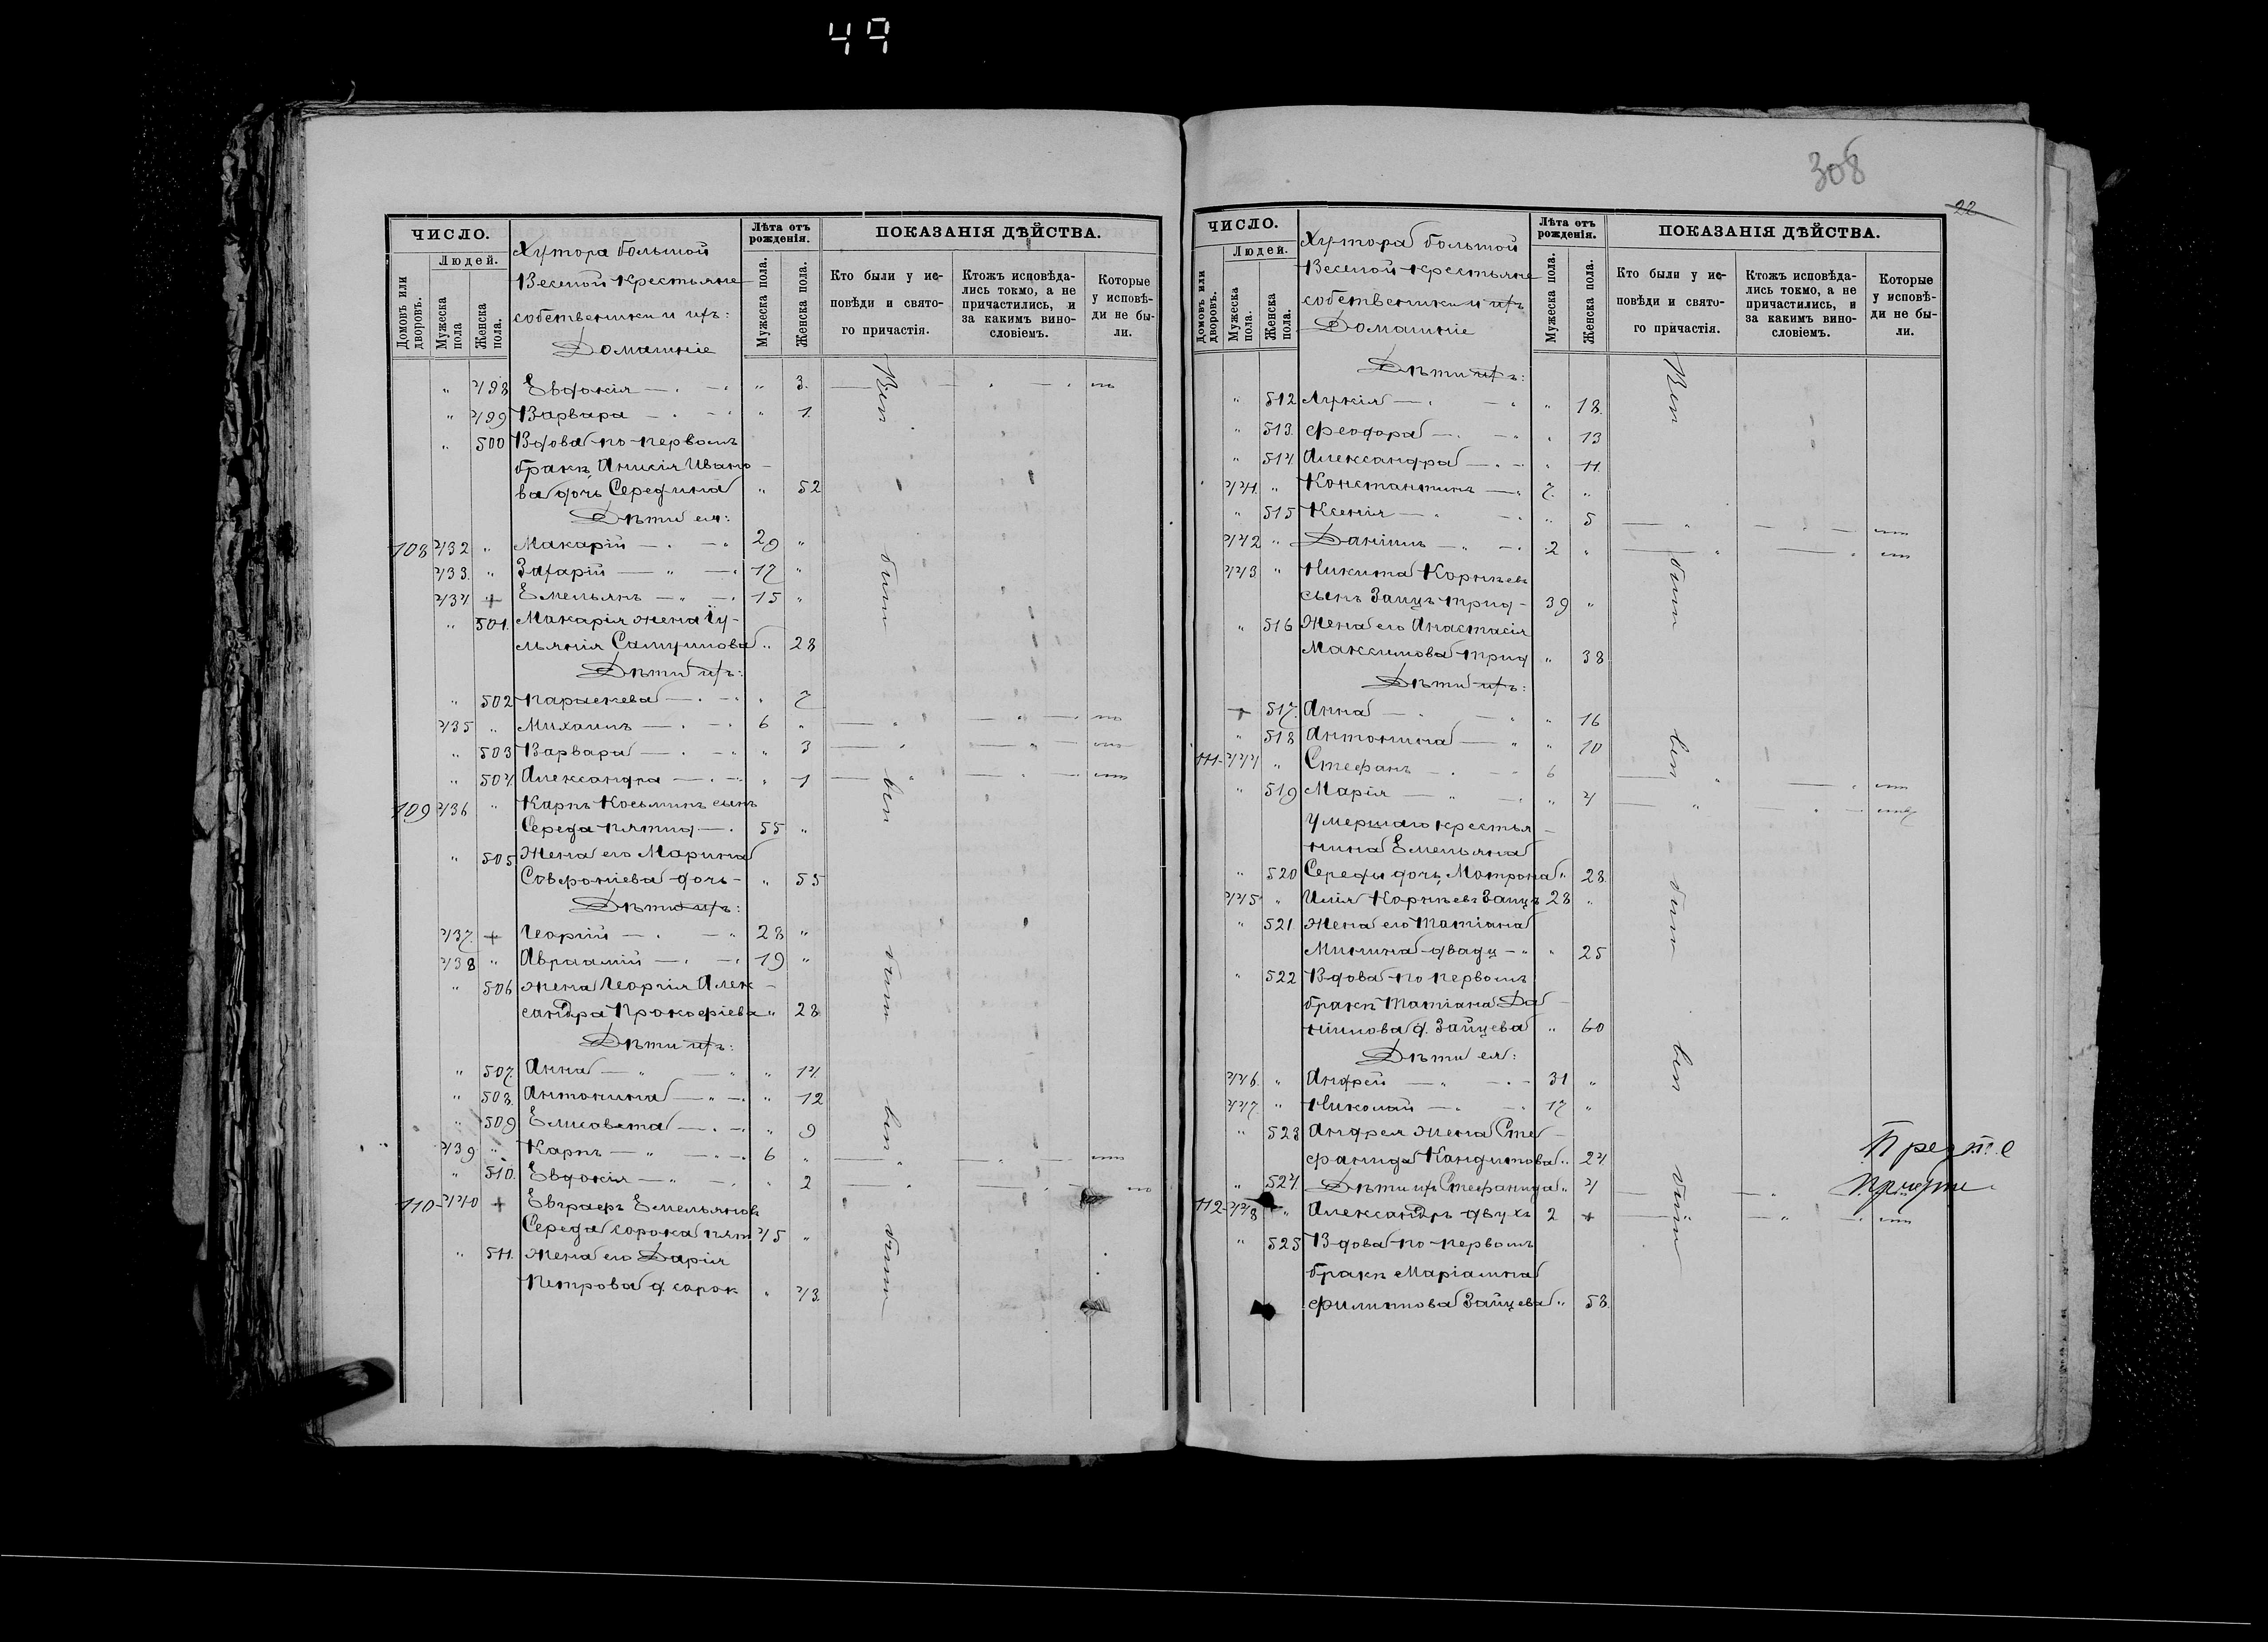 49
308
22
ЧИСЛО.
Людей.
Домовъ или дворовъ.
Мужеска пола
Женска пола.
Хутора большой
Веселой крестьяне
собственники и ихъ:
Домашніе
Лѣта отъ рожденія.
Мужеска пола.
Женска пола.
ПОКАЗАНІЯ ДѢЙСТВА.
Кто были у исповѣди и святого причастія.
Ктожъ исповѣдались токмо, а не причастились, и за какимъ винословіемъ.
Которые у исповѣди не были.
" 498 Евдокія — " — " " 3.
" 499 Варвара — " — " " 1.
" 500 Вдова по первомъ
бракѣ Анисія Ивано-
ва дочь Середина " 52
Дѣти ея:
108 432 " Макарій — " — " 29 "
433. " Захарій — " — " 17 "
434 + Емельянъ — " — " 15 "
" 501. Макарія жена Іу-
льянія Самуилова " 28
Дѣти ихъ:
" 502 Параскева — " — " " 7
435 " Михаилъ — " — " 6 "
" 503 Варвара — " — " " 3
" 504. Александра — " — " " 1
109 436 " Карпъ Косьминъ сынъ
Середа пятид — " 55 "
" 505 Жена его Марина
Софроніева дочь — " 55
Дѣти ихъ:
437. + Георгій — " — " 28 "
438 " Авраамій — " — " 19 "
" 506 жена Георгія Алек-
сандра Прокофіева " 28
Дѣти ихъ:
" 507. Анна — " — " " 14
" 508. Антонина — " — " " 12
" 509 Елисавета — " — " " 9
439 " Карпъ — " — " 6 "
" 510. Евдокія — " — " " 2
110- 440 + Евграфъ Емельяновъ
Середа сорока пят 45 "
" 511. жена его Дарія
Петрова д. сорок " 43.
ЧИСЛО.
Людей.
Домовъ или дворовъ.
Мужеска пола.
Женска пола.
Хутора большой
Веселой крестьяне
собственники и ихъ
Домашніе
Лѣта отъ рожденія.
Мужеска пола.
Женска пола.
ПОКАЗАНІЯ ДѢЙСТВА.
Кто были у исповѣди и святого причастія.
Ктожъ исповѣдались токмо, а не причастились, и за какимъ винословіемъ.
Которые у исповѣди не были.
Дѣти ихъ:
" 512 Лукія — " — " " 18.
" 513. Феодора — " — " " 13
" 514. Александра — " — " " 11.
441. " Константинъ — " 7. "
" 515 Ксенія — " — " " 5
442 " Даніилъ — " — " 2 "
443 " Никита Корнѣевъ
сынъ Заицъ трид — 39 "
" 516 Жена его Анастасія
Максимова трид " 38
Дѣти ихъ:
+ 517. Анна — " — " " 16
" 518 Антонина — " " 10
111- 444 " Стефанъ — " — " 6
" 519 Марія — " — " " 4
Умершаго крестья-
нина Емельяна
" 520 Середы дочь Матрона " 28.
445 " Илія Корнѣевъ Заицъ 28 "
" 521 Жена его Татіана
Минина двадц — " " 25
" 522 Вдова по первомъ
бракѣ Татіана Да-
ніилова д. Зайцева " 60
Дѣти ея:
446. " Андрей — " — " 31 "
447. " Николай — " — " 17 "
" 523 Андрея жена Сте-
фанида Кандитова " 24
" 524. Дѣти ихъ Стефанида " 4
112- 448 " Александръ двухъ 2 +
" 525 Вдова по первомъ
бракѣ Маріамна
Филиппова Зайцева " 58.